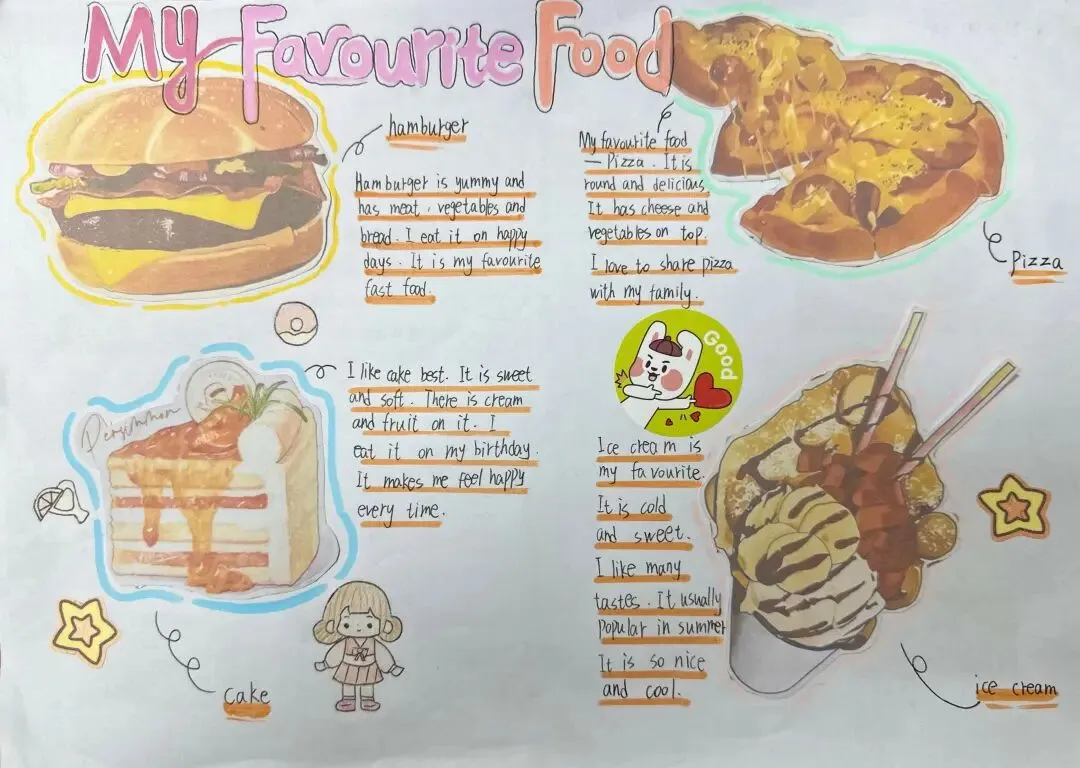 My Favourite Food
hamburger
Hamburger is yummy and
has meat, vegetables and
bread. I eat it on happy
days. It is my favourite
fast food.
My favourite food
— Pizza. It is
round and delicious
It has cheese and
vegetables on top.
I love to share pizza
with my family.
Pizza
I like cake best. It is sweet
and soft. There is cream
and fruit on it. I
eat it on my birthday.
It makes me feel happy
every time.
cake
Good
Ice cream is
my favourite.
It is cold
and sweet.
I like many
tastes. It usually
popular in summer
It is so nice
and cool.
ice cream